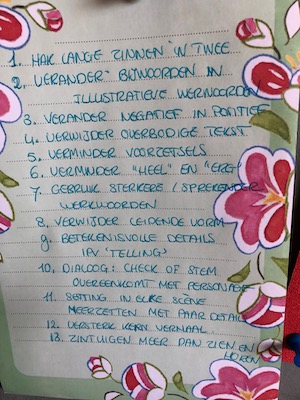 1. HAK LANGE ZINNEN IN TWEE
2. VERANDER BIJWOORDEN IN
ILLUSTRATIEVE WERKWOORDEN
3. VERANDER NEGATIEF IN POSITIEF
4. VERWIJDER OVERBODIGE TEKST
5. VERMINDER VOORZETSELS
6. VERMINDER "HEEL" EN "ERG"
7. GEBRUIK STERKERE / SPREKENDER
WERKWOORDEN
8. VERWIJDER LEIDENDE VORM
9. BETEKENISVOLLE DETAILS
IPV 'TELLING'
10. DIALOOG: CHECK OF STEM
OVEREENKOMT MET PERSONAGE
11. SETTING IN ELKE SCÈNE
NEERZETTEN MET PAAR DETAILS
12. VERSTERK KERN VERHAAL.
13. ZINTUIGEN MEER DAN ZIEN EN
HOREN